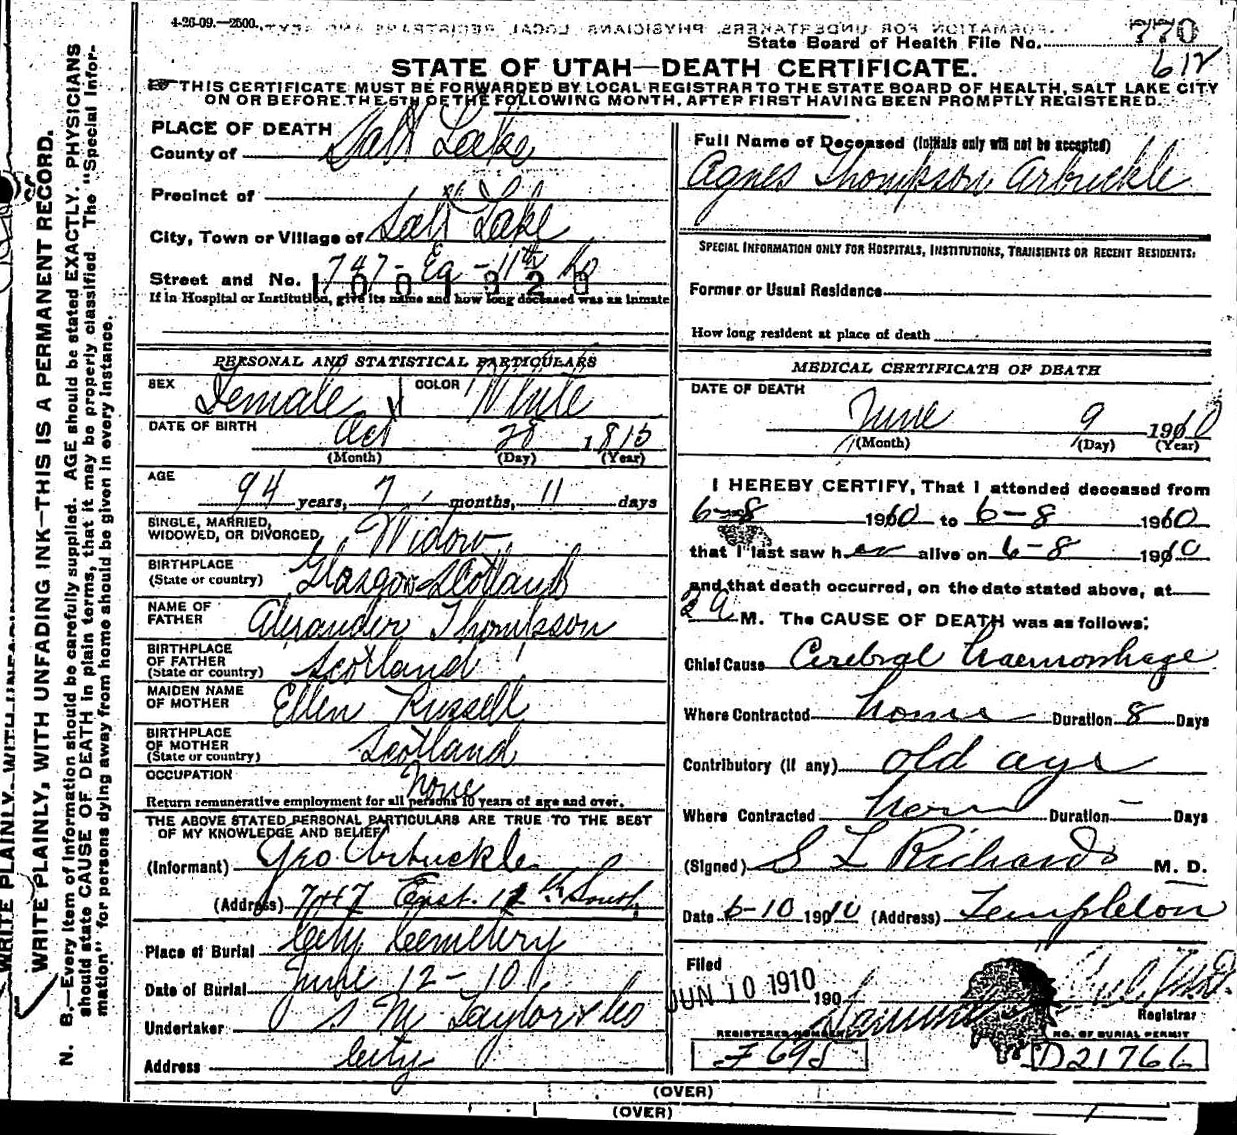 4-26-09.—2500.
FORMATION FOR UNDERTAKERS, PHYSICIANS, LOCAL REGISTRARS AND SEXT
State Board of Health File No. 770
612
STATE OF UTAH—DEATH CERTIFICATE.
THIS CERTIFICATE MUST BE FORWARDED BY LOCAL REGISTRAR TO THE STATE BOARD OF HEALTH, SALT LAKE CITY
ON OR BEFORE THE 5TH OF THE FOLLOWING MONTH, AFTER FIRST HAVING BEEN PROMPTLY REGISTERED.
PLACE OF DEATH
County of Salt Lake
Precinct of
City, Town or Village of Salt Lake
Street and No. 747- Ea - 11th So
1001320
If in Hospital or Institution, give its name and how long deceased was an inmate
PERSONAL AND STATISTICAL PARTICULARS
SEX Female COLOR White
DATE OF BIRTH Oct 28 1815
(Month) (Day) (Year)
AGE 94 years, 7 months, 11 days
SINGLE, MARRIED,
WIDOWED, OR DIVORCED Widow
BIRTHPLACE
(State or country) Glasgow Scotland
NAME OF
FATHER Alexander Thompson
BIRTHPLACE
OF FATHER
(State or country) Scotland
MAIDEN NAME
OF MOTHER Ellen Russell
BIRTHPLACE
OF MOTHER
(State or country) Scotland
OCCUPATION None
Return remunerative employment for all persons 10 years of age and over.
THE ABOVE STATED PERSONAL PARTICULARS ARE TRUE TO THE BEST
OF MY KNOWLEDGE AND BELIEF
(Informant) Geo Arbuckle
(Address) 747 East. 12th South
Place of Burial City Cemetery
Date of Burial June 12-10
Undertaker S M Taylor & Co
Address City
Full Name of Deceased (Initials only will not be accepted)
Agnes Thompson Arbuckle
SPECIAL INFORMATION ONLY FOR HOSPITALS, INSTITUTIONS, TRANSIENTS OR RECENT RESIDENTS:
Former or Usual Residence
How long resident at place of death
MEDICAL CERTIFICATE OF DEATH
DATE OF DEATH
June 9 1910
(Month) (Day) (Year)
I HEREBY CERTIFY, That I attended deceased from
6-8 1910 to 6-8 1910
that I last saw her alive on 6-8 1910
and that death occurred, on the date stated above, at
2 a M. The CAUSE OF DEATH was as follows:
Chief Cause Cerebral haemorrhage
Where Contracted home Duration 8 Days
Contributory (if any) old age
Where Contracted home Duration — Days
(Signed) S L Richards M. D.
Date 6-10 1910 (Address) Templeton
Filed
JUN 10 1910 190
Registrar
REGISTERED NUMBER NO. OF BURIAL PERMIT
F 695 D21766
(OVER)
(OVER)
WRITE PLAINLY, WITH UNFADING INK—THIS IS A PERMANENT RECORD.
N. B.—Every item of information should be carefully supplied. AGE should be stated EXACTLY. PHYSICIANS
should state CAUSE OF DEATH in plain terms, that it may be properly classified. The "Special Infor-
mation" for persons dying away from home should be given in every instance.